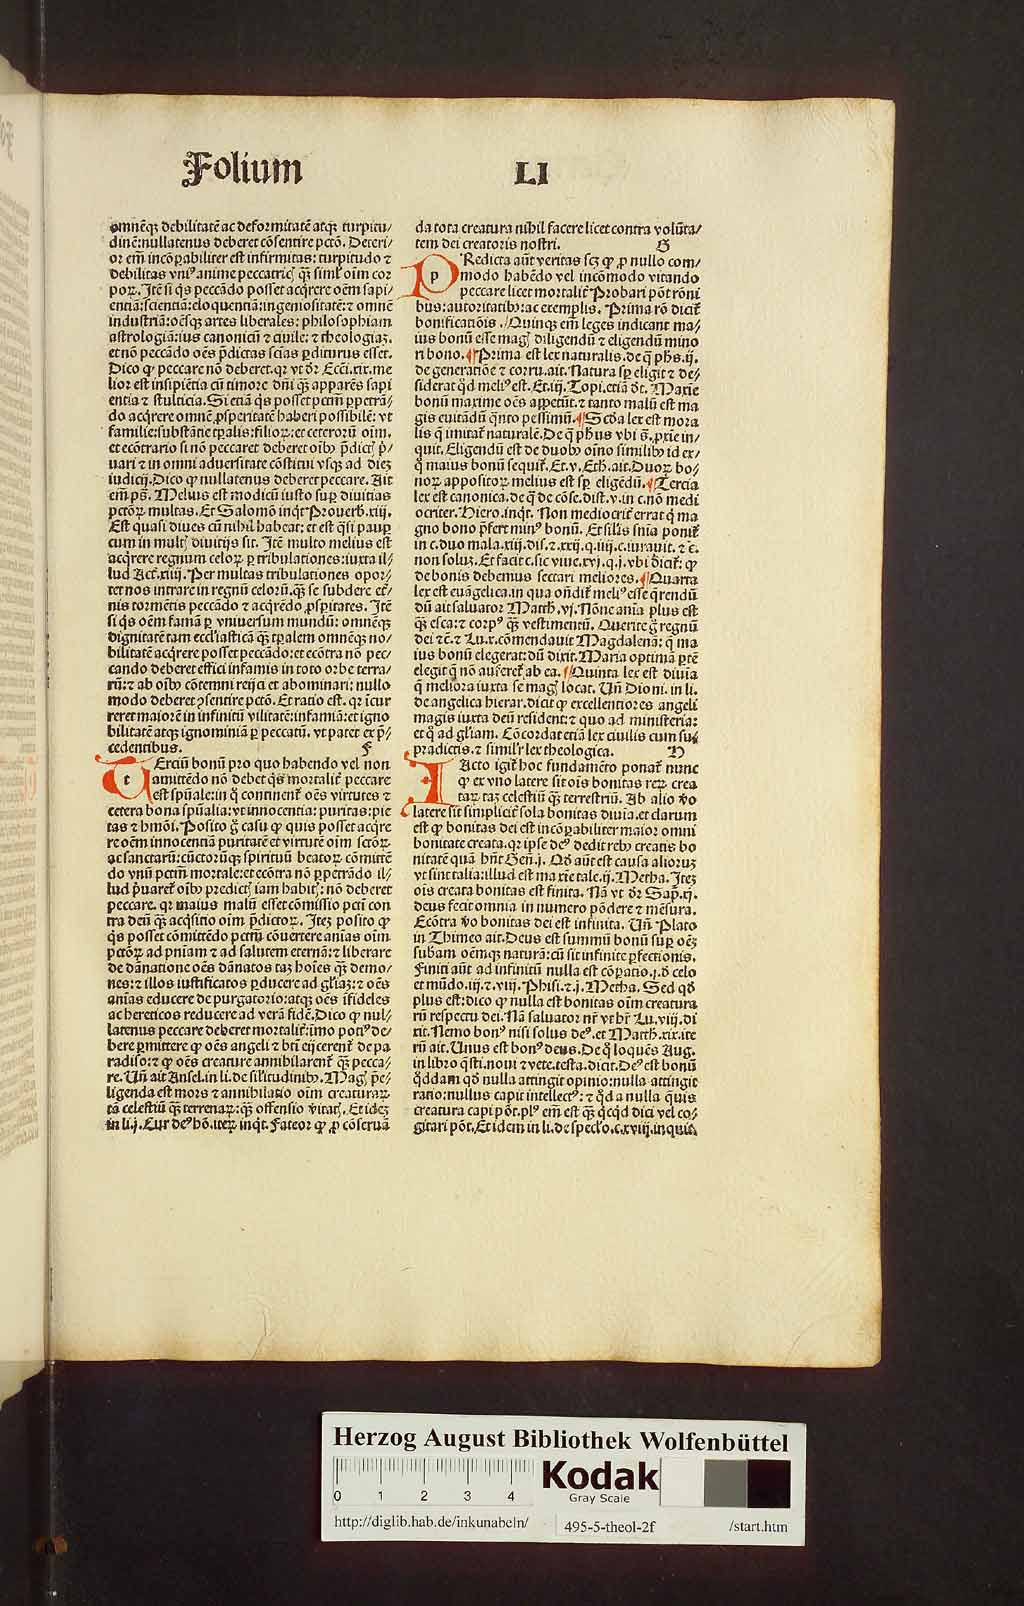 Folium LI
omnēqꝫ debilitatē ac deformitatē atqꝫ turpitu/
dinē:nullatenus deberet cōsentire pctō. Deteri/
or em̄ incōꝑabiliter est infirmitas: turpitudo ⁊
debilitas vniꝰ anime peccatricꝭ qꝫ̄ simĺ oīm cor
poꝝ. Itē si q̇s peccādo posset acq̇rere oēm sapi/
entiā:scientiā:eloquentiā:ingeniositatē:⁊ omnē
industriā:oēsqꝫ artes liberales: philosophiam
astrologiā:ius canonicū ⁊ ciuile: ⁊ theologiaꝫ.
et nō peccādo oēs p̄dictas scīas ꝑditurus esset.
Dico ꝙ peccare nō deberet.qꝛ vt dr̄ Ecci.xix.me
lior est insipiētia cū timore dn̄i qꝫ̄ apparēs sapi
entia ⁊ stulticia. Si etiā q̇s posset pctm̄ ꝑpetrā/
do acq̇rere omnē ꝓsperitatē haberi possibilē: vt
familie:substātie tꝑalis:filioꝝ:et ceteroꝝ oīm.
et ecōtrario si nō peccaret deberet oībꝰ p̄dictꝭ p̄/
uari ⁊ in omni aduersitate cōstitui vsqꝫ ad dieꝫ
iudicij. Dico ꝙ nullatenus deberet peccare. Ait
em̄ ps̄. Melius est modicū iusto suꝑ diuitias
pctōꝝ multas. Et Salomō inq̇t Prouerb.xiij.
Est quasi diues cū nihil habeat: et est q̄si pauꝑ
cum in multꝭ diuitijs sit. Itē multo melius est
acq̇rere regnum celoꝝ ꝑ tribulationes:iuxta il/
lud Act.xiiij. Per multas tribulationes opor/
tet nos intrare in regnū celorū.qꝫ̄ se subdere et̄/
nis tormētis peccādo ⁊ acq̇rēdo ꝓsꝑitates. Itē
si q̇s oēm famā ꝑ vniuersum mundū: omnēqꝫ
dignitatē tam eccl̓iasticā qꝫ̄ tꝑalem omnēqꝫ no/
bilitatē acq̇rere posset peccādo:et ecōtra nō pec/
cando deberet effici infamis in toto orbe terra/
rū:⁊ ab oībꝰ cōtemni reijci et abominari: nullo
modo deberet ꝯsentire pctō. Et ratio est. qꝛ icur
reret maiorē in infinitū vilitatē:infamiā:et igno
bilitatē atqꝫ ignominiā ꝑ peccatū. vt patet ex p̄/
cedentibus. F
TErciū bonū pro quo habendo vel non
amittēdo nō debet q̇s mortalit̄ peccare
est spūale:in q̄ continent̄ oēs virtutes ⁊
cetera bona spūalia:vt innocentia: puritas:pie
tas ⁊ hmōi. Posito g̊ casu ꝙ quis posset acq̇re
re oēm innocentiā puritatē et virtutē oīm sctōꝝ
ac sanctarū:cūctorūqꝫ spirituū beatoꝝ cōmittē
do vnū pctm̄ mortale:et ecōtra nō ꝑpetrādo il/
lud p̄uaret̄ oībꝰ predictꝭ iam habitꝭ: nō deberet
peccare. qꝛ maius malū esset cōmissio pcti con
tra deū qꝫ̄ acq̇sitio oīm p̄dictoꝝ. Iteꝫ posito ꝙ
q̇s posset cōmittēdo pctm̄ cōuertere aīas oīm
pctōꝝ ad pn̄iam ⁊ ad salutem eternā:⁊ liberare
de dānatione oēs dānatos taꝫ hoīes qꝫ̄ demo/
nes:⁊ illos iustificatos ꝑducere ad gl̓iaꝫ:⁊ oēs
aīas educere de purgatorio:atqꝫ oēs īfideles
ac hereticos reducere ad verā fidē. Dico ꝙ nul/
latenus peccare deberet mortalit̄:īmo potiꝰ de/
bere ꝑmittere ꝙ oēs angeli ⁊ bti eijcerent̄ de pa
radiso:⁊ ꝙ oēs creature annihilarent̄ qꝫ̄ pecca/
re. Un̄ ait Ansel.in li.de sil̓itudinibꝰ. Magꝭ p̄e/
ligenda est mors ⁊ annihilatio oīm creaturaꝝ
tā celestiū qꝫ̄ terrenaꝝ: qꝫ̄ offensio v̄itatꝭ. Et ideꝫ
in li.j. Cur deꝰ hō. iteꝝ inq̇t. Fateor ꝙ ꝓ cōserua
da tota creatura nihil facere licet contra volūta/
tem dei creatoris nostri. G
PRedicta aūt veritas scꝫ ꝙ ꝓ nullo com/
modo habēdo vel incōmodo vitando
peccare licet mortalit̄ Probari pōt rōni
bus:autoritatibꝰ:ac exemplis. Prima rō dicit̄
bonificatiōis. Quinqꝫ em̄ leges indicant ma/
ius bonū esse magꝭ diligendū ⁊ eligendū mino
ri bono. ¶Prima est lex naturalis.de q̄ phs.ij.
de generatiōe ⁊ corru.ait. Natura sꝑ eligit ⁊ de/
siderat q̇d meliꝰ est. Et.iij. Topi.etiā dt. Maxie
bonū maxime oēs appetūt.⁊ tanto malū est ma
gis euitādū q̄nto pessimū. ¶Scd̓a lex est mora
lis q̄ imitat̄ naturalē. De q̄ phus vbi s̄.ꝓxie in/
quit. Eligendū est de duobꝰ oīno similibꝰ id ex/
q̊ maius bonū sequit̄. Et.v. Eth.ait. Duoꝝ bo/
noꝝ appositoꝝ melius est sꝑ eligēdū. ¶Tercia
lex est canonica.de q̄ de cōse.dist.v.in c.nō medi
ocriter. Hiero.inq̇t. Non mediocrit̄ errat q̇ ma
gno bono p̄fert minꝰ bonū. Et sil̓is sn̄ia ponit̄
in c.duo mala.xiij.dis.⁊.xxij.q.iiij.c.iurauit.⁊ c̄.
non soluꝫ. Et facit c.sic viue.xvj.q.j.vbi dicit̄: ꝙ
de bonis debemus sectari meliores. ¶Quarta
lex est euāgelica.in qua on̄dit̄ meliꝰ esse q̄rendū
dū ait saluator Matth.vj. Nōne aīa plus est
qꝫ̄ esca:⁊ corpꝰ qꝫ̄ vestimentū. Querite g̊ regnū
dei ⁊c̄.⁊ Lu.x.cōmendauit Magdalenā: q̄ ma
ius bonū elegerat:dū dixit. Maria optimā ꝑtē
elegit q̄ nō auferet̄ ab ea. ¶Quinta lex est diuīa
q̄ meliora iuxta se magꝭ locat. Un̄ Dioni. in li.
de angelica hierar.dicit ꝙ excellentiores angeli
magis iuxta deū resident:⁊ quo ad ministeria:
et q̊ ad gl̓iam. Cōcordat etiā lex ciuilis cum su/
pradictis.⁊ simil̓r lex theologica. H
IActo igit̄ hoc fundamēto ponat̄ nunc
ꝙ ex vno latere sit oīs bonitas reꝝ crea
taꝝ taꝫ celestiū qꝫ̄ terrestriū. Ab alio v̊o
latere sit simplicit̄ sola bonitas diuīa.et clarum
est ꝙ bonitas dei est incōꝑabiliter maior omni
bonitate creata.qꝛ ipse deꝰ dedit rebꝰ creatis bo
nitatē quā hn̄t Gen̄.j. Qd̓ aūt est causa alioruꝫ
vt sint talia:illud est maxie tale.ij. Metha. Iteꝫ
oīs creata bonitas est finita. Nā vt dr̄ Sap̄.xj.
deus fecit omnia in numero pōdere ⁊ mēsura.
Ecōtra v̊o bonitas dei est infinita. Un̄ Plato
in Thimeo ait. Deus est summū bonū suꝑ oēꝫ
subam oēmqꝫ naturā: cū sit infinite ꝑfectionis.
Finiti aūt ad infinitū nulla est cōꝑatio.j.d̓ celo
et mūdo.iij.⁊.viij. Phisi.⁊.j. Metha. Sed qd̓
plus est:dico ꝙ nulla est bonitas oīm creatura
rū respectu dei. Nā saluator nr̄ vt hr̄ Lu.viij.di
xit. Nemo bonꝰ nisi solus deꝰ.et Matth.xix.ite
rū ait. Unus est bonꝰ deus. De q̊ loquēs Aug.
in libro q̄sti.noui ⁊ vete.testa.dicit. Deꝰ est bonū
q̇ddam qd̓ nulla attingit opinio:nulla attingit
ratio:nullus capit intellectꝰ: ⁊ q̇d a nulla quis
creatura capi pōt.plꝰ em̄ est qꝫ̄ q̇cq̇d dici vel co/
gitari pōt. Et idem in li.de specl̓o.c.xviij.inquit.
Herzog August Bibliothek Wolfenbüttel
0 1 2 3 4
Kodak
Gray Scale
http://diglib.hab.de/inkunabeln/ 495-5-theol-2f /start.htm